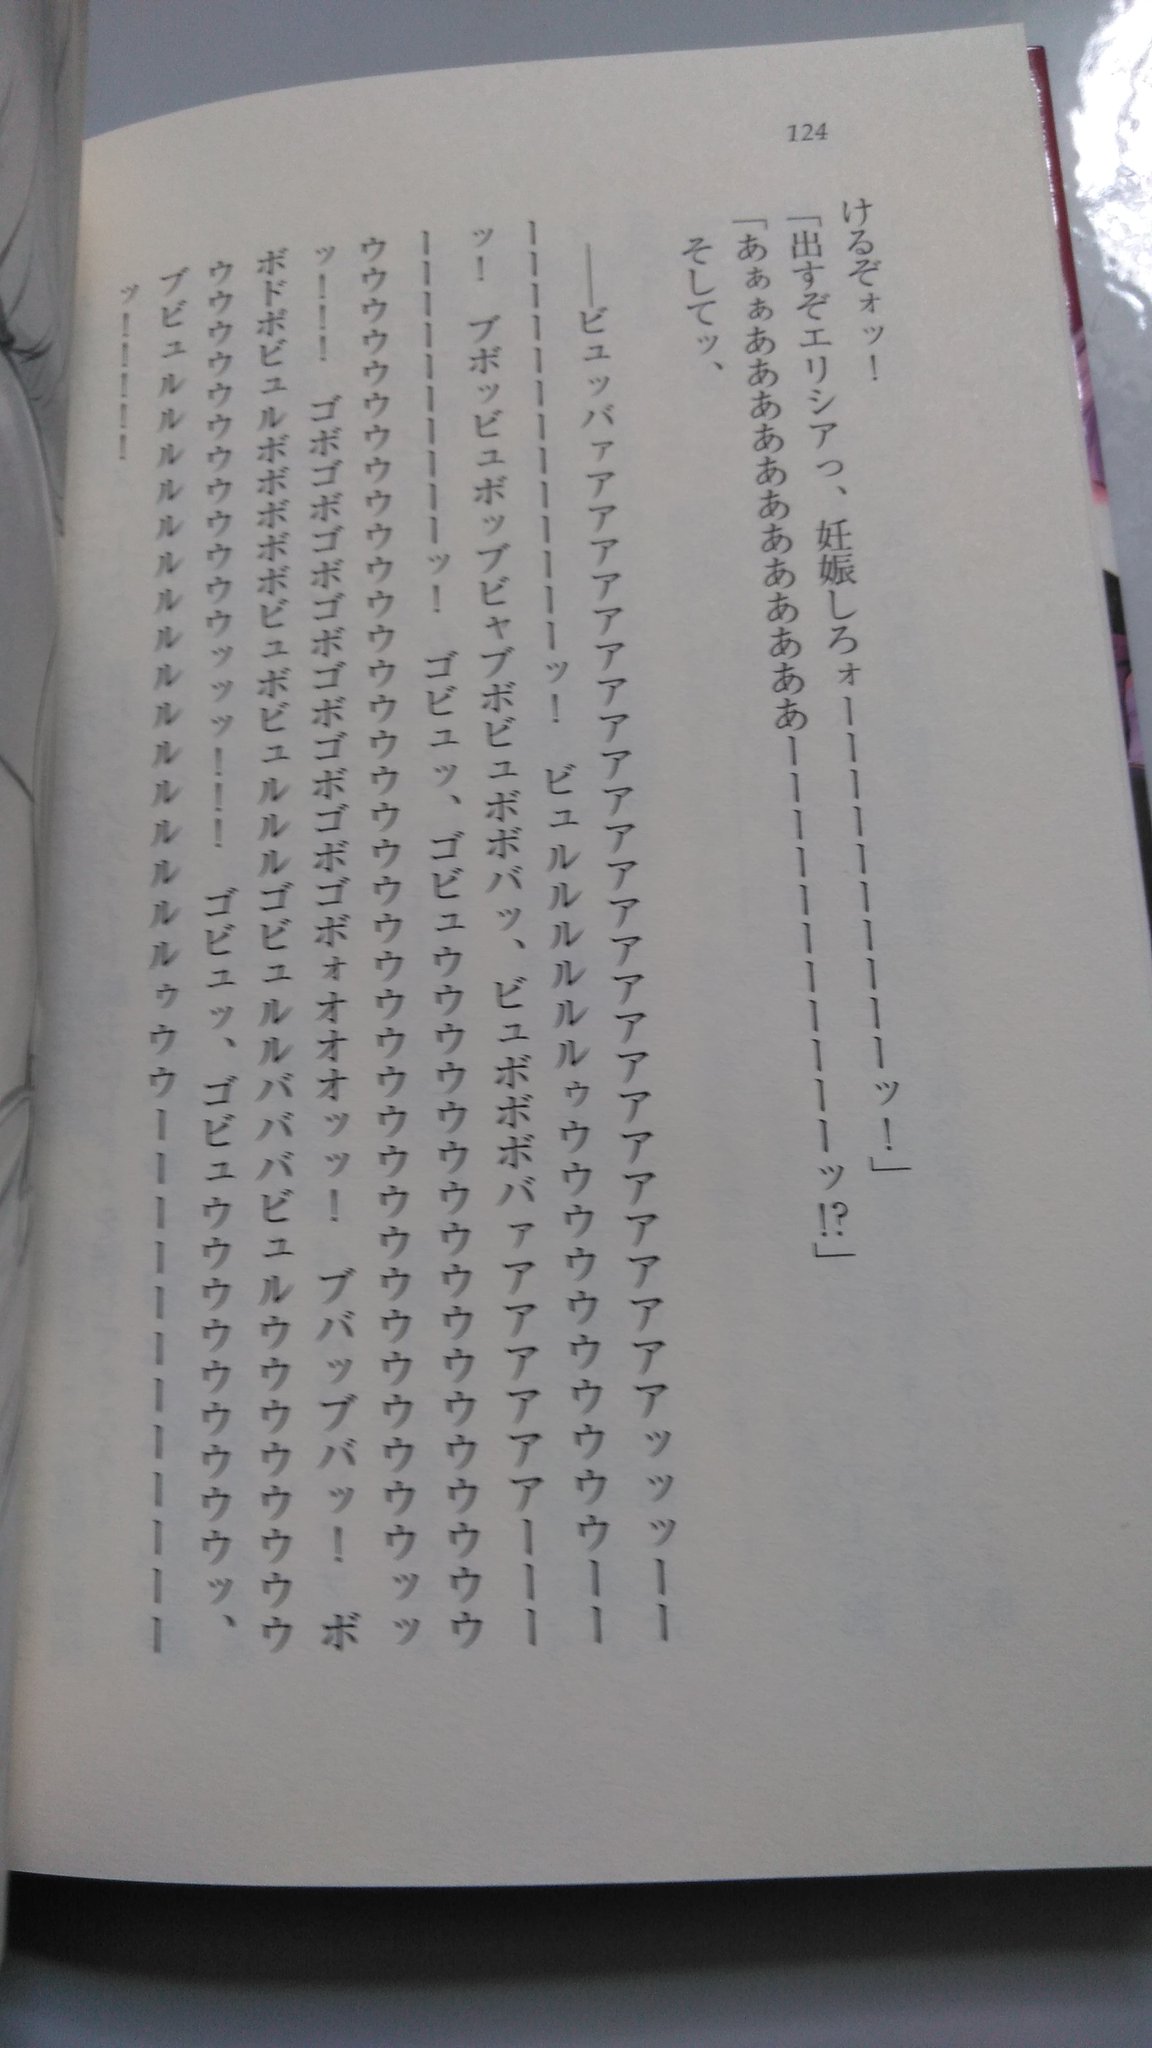 124
けるぞォッ！
「出すぞエリシアっ、妊娠しろォーーーーーーーーーーーッ！」
「あぁぁああああああああああああーーーーーーーーーーーーッ!?」
そしてッ、
――ビュッバァアアアアアアアアアアアアアアアアアアアアアアアアアアッッッーー
ーーーーーーーーーーーーッ！　ビュルルルルルルゥウウウウウウウウウウーー
ッ！　ブボッビュボッブビャブボビュボボバッ、ビュボボボバァアアアアアアーーー
ーーーーーーーーッ！　ゴビュッ、ゴビュウウウウウウウウウウウウウウウウウ
ウウウウウウウウウウウウウウウウウウウウウウウウウウウウウウウウウウッッ
ッ！！！　ゴボゴボゴボゴボゴボゴボゴボゴボォオオオッッ！　ブバッブバッ！　ボ
ボドボビュルボボボボボビュボビュルルルゴビュルルバババビュルウウウウウウウウウ
ウウウウウウウウウウウッッッ！！！　ゴビュッ、ゴビュウウウウウウウウウウッ、
ブビュルルルルルルルルルルルルルルルルルゥウウーーーーーーーーーーーーー
ッ！！！！！